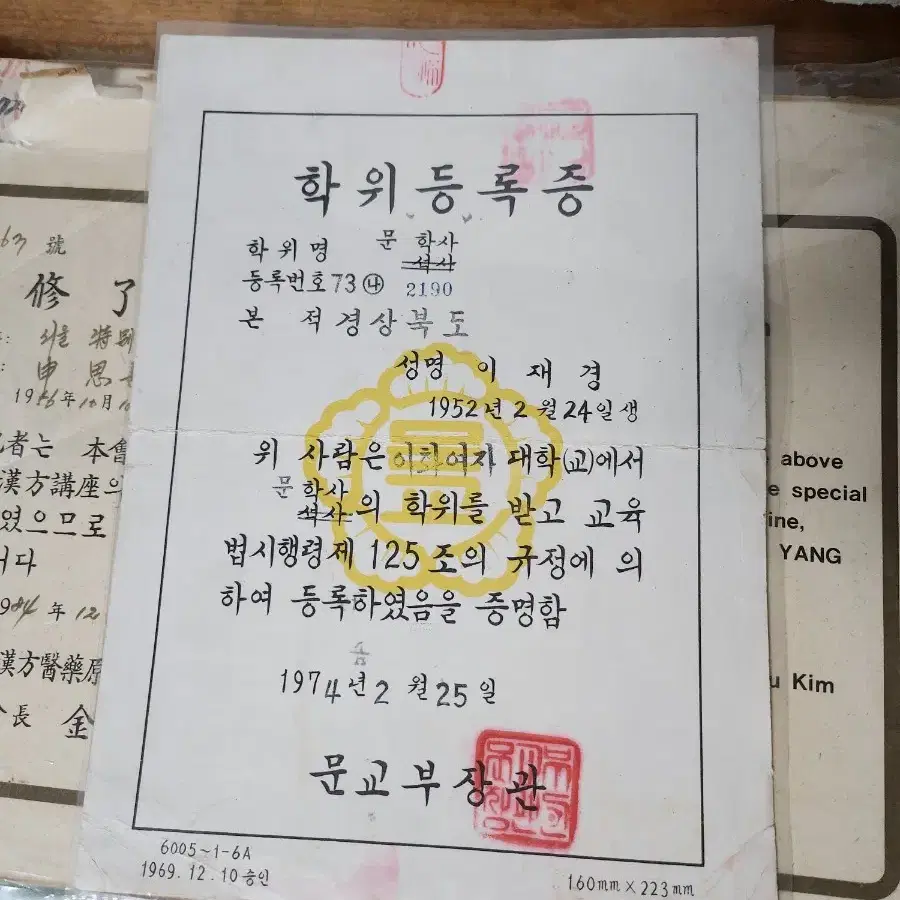 학위등록증
학위명 문 학사
석사
등록번호 73 ㉯ 2190
본 적 경상북도
성명 이 재 경
1952년 2월 24일생
위 사람은 이화여자 대학(교)에서
문 학사
석사 의 학위를 받고 교육
법시행령제 125조의 규정에 의
하여 등록하였음을 증명함
1974년 2월 25일
문교부장관
6005~1-6A
1969.12.10 승인
160mm × 223mm
63 號
修 了
서울 特別
申 思
1956年 10月 10
者는 本會
漢方講座의
였으므로
니다
1984年 12
漢方醫藥原
長 金
above
e special
ine,
YANG
u Kim